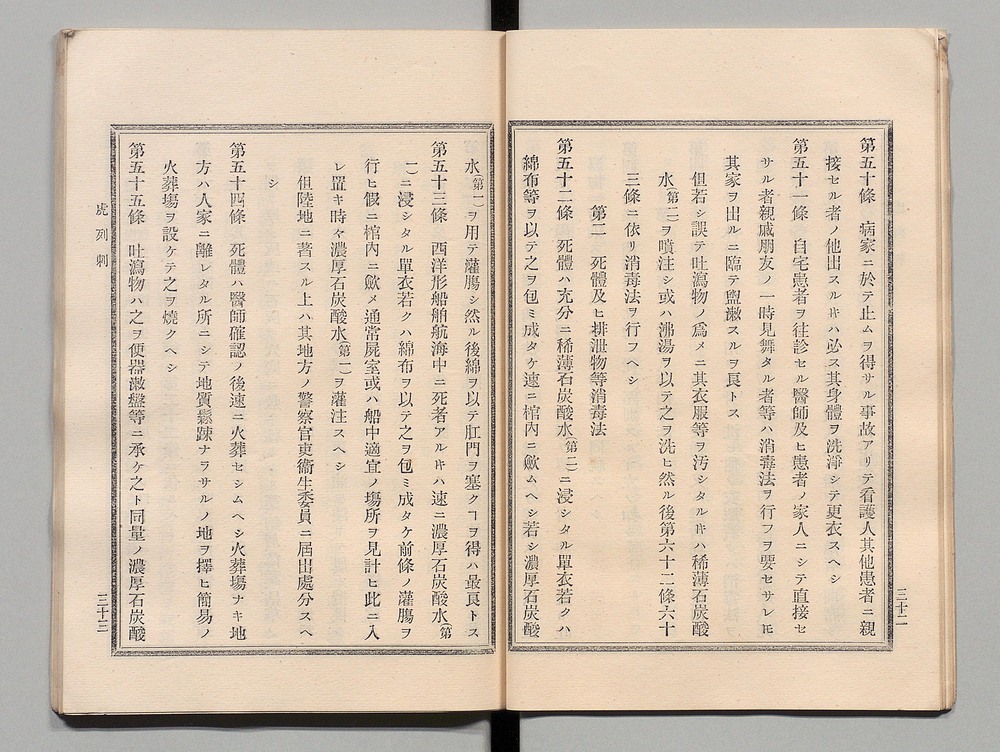 第五十條　病家ニ於テ止ムヲ得サル事故アリテ看護人其他患者ニ親
接セル者ノ他出スルヰハ必ス其身體ヲ洗淨シテ更衣スヘシ
第五十一條　自宅患者ヲ往診セル醫師及ヒ患者ノ家人ニシテ直接セ
サル者親戚朋友ノ一時見舞タル者等ハ消毒法ヲ行フヲ要セサレ𪜈
其家ヲ出ルニ臨テ盥漱スルヲ良トス
但若シ誤テ吐瀉物ノ爲メニ其衣服等ヲ汚シタルヰハ稀薄石炭酸
水(第二)ヲ噴注シ或ハ沸湯ヲ以テ之ヲ洗ヒ然ル後第六十二條六十
三條ニ依リ消毒法ヲ行フヘシ
第二　死體及ヒ排泄物等消毒法
第五十二條　死體ハ充分ニ稀薄石炭酸水(第二)ニ浸シタル單衣若クハ
綿布等ヲ以テ之ヲ包ミ成タケ速ニ棺內ニ歛ムヘシ若シ濃厚石炭酸
三十二
水(第一)ヲ用テ灌膓シ然ル後綿ヲ以テ肛門ヲ塞クヿヲ得ハ最良トス
第五十三條　西洋形船舶航海中ニ死者アルヰハ速ニ濃厚石炭酸水(第
一)ニ浸シタル單衣若クハ綿布ヲ以テ之ヲ包ミ成タケ前條ノ灌膓ヲ
行ヒ假ニ棺內ニ歛メ通常屍室或ハ船中適宜ノ塲所ヲ見計ヒ此ニ入
レ置キ時々濃厚石炭酸水(第一)ヲ灌注スヘシ
但陸地ニ著スル上ハ其地方ノ警察官吏衞生委員ニ屆出處分スヘ
シ
第五十四條　死體ハ醫師確認ノ後速ニ火葬セシムヘシ火葬塲ナキ地
方ハ人家ニ離レタル所ニシテ地質鬆踈ナラサルノ地ヲ擇ヒ簡易ノ
火葬塲ヲ設ケテ之ヲ燒クヘシ
第五十五條　吐瀉物ハ之ヲ便器漱盤等ニ承ケ之ト同量ノ濃厚石炭酸
虎列剌
三十三